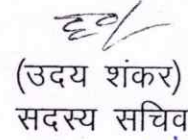 (उदय शंकर)
सदस्य सचिव